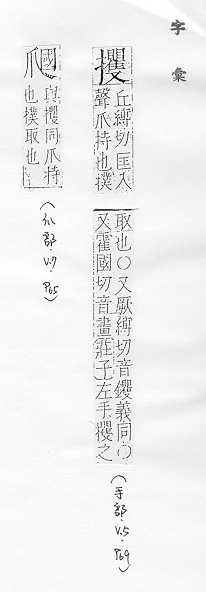 字彙
攫
丘縛切匡入
聲爪持也撲
取也○又厥縛切音钁義同○
又霍國切音畫莊子左手攫之
(手部.V.5.P69)
爴
與攫同爪持
也撲取也
(爪部 V.7 P65)